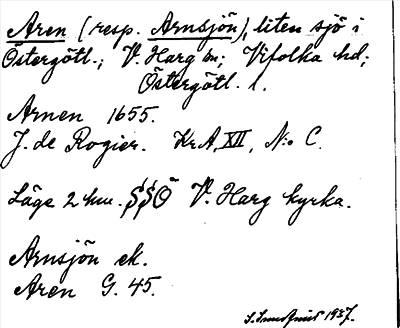 Aren (resp. Arnsjön), liten sjö i
Östergötl.; V. Harg sn; Vifolka hd;
Östergötl. l.
Arnen 1655.
J. de Rogier. KrA, XII, N:o C.
Läge 2 km. SSÖ V. Harg kyrka.
Arnsjön ek.
Aren G. 45.
1937.